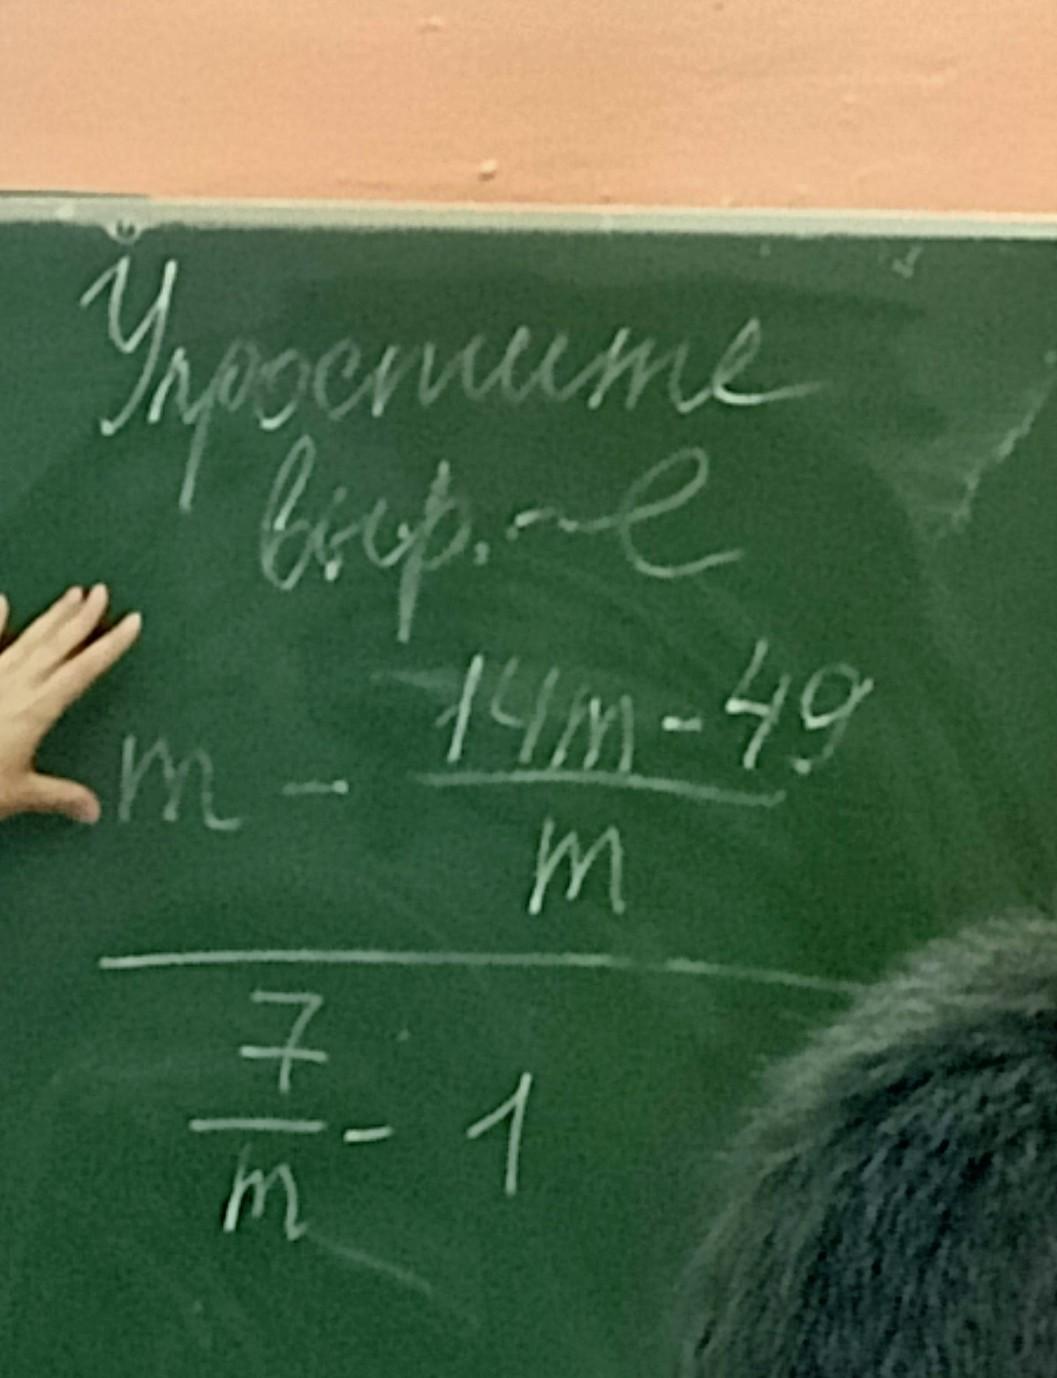 Упростите
выр.-е
m - \frac{14m-49}{m}
\frac{7}{m} - 1